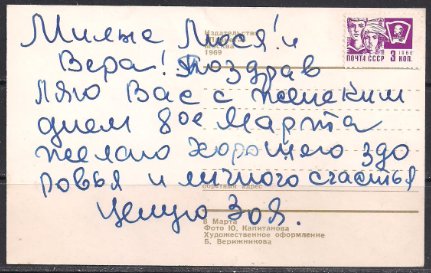 Милые Люся! и
Вера! Поздрав
ляю Вас с женским
днем 8ое Марта
желаю хорошего здо
ровья и личного счастья
Целую Зоя.
Издательство
1969
1966
ПОЧТА СССР 3 КОП.
обратный адрес
8 Марта
Фото Ю. Капитанова
Художественное оформление
Б. Верижникова